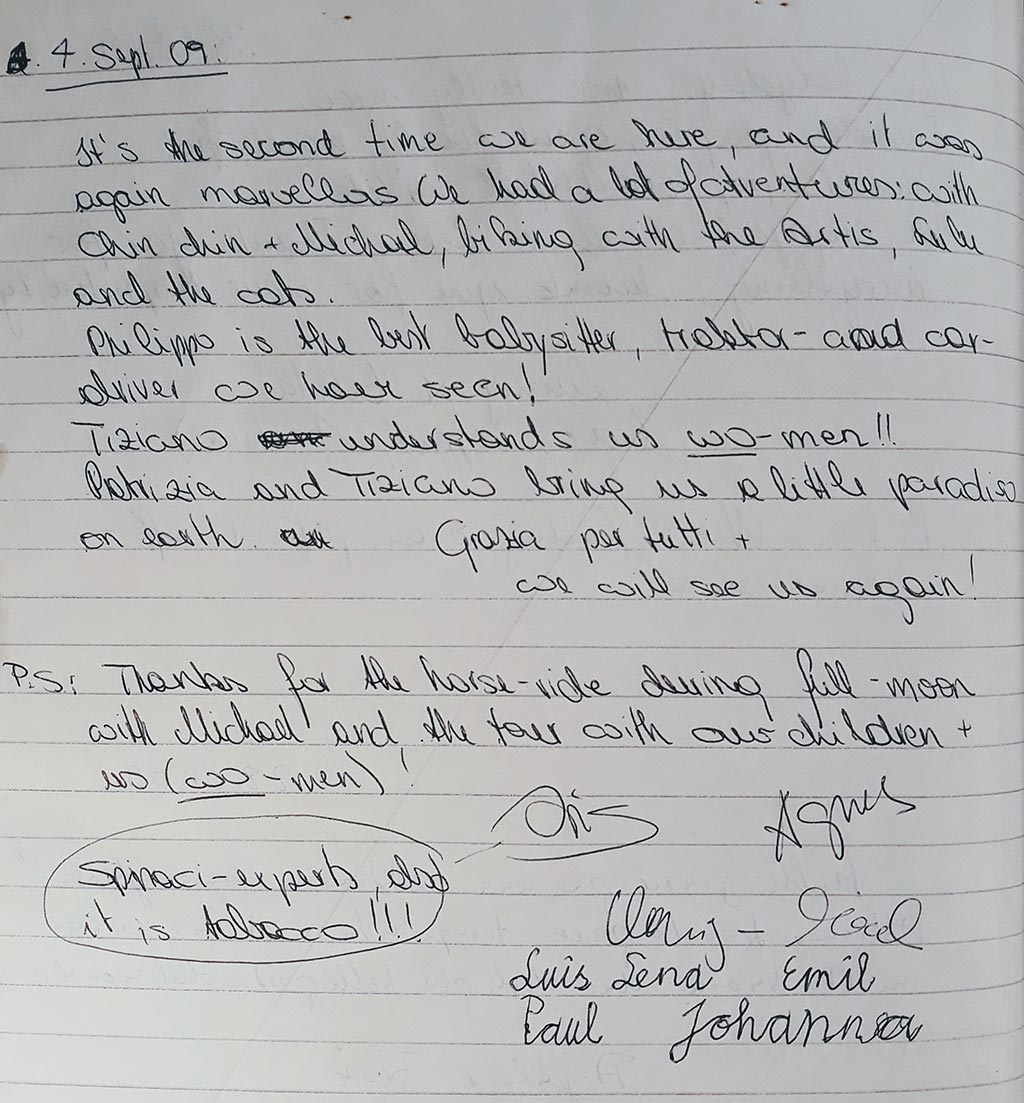 4. Sept. 09:
It's the second time we are here, and it was
again marvellos We had a lot of adventures: with
Chin chin + Michael, biking with the Artis, Lulu
and the cats.
Philippo is the best babysitter, traktor- and car-
driver we have seen!
Tiziano understands us wo-men!!
Patrizia and Tiziano bring us a little paradiso
on earth. Grazia per tutti +
we will see us again!
P.S: Thanks for the horse-ride during full-moon
with Michael and the tour with our children +
us (wo-men)!
Iris Agnes
Spinaci-experts, also
it is tabacco!!!
Luis Lena Emil
Paul Johanna